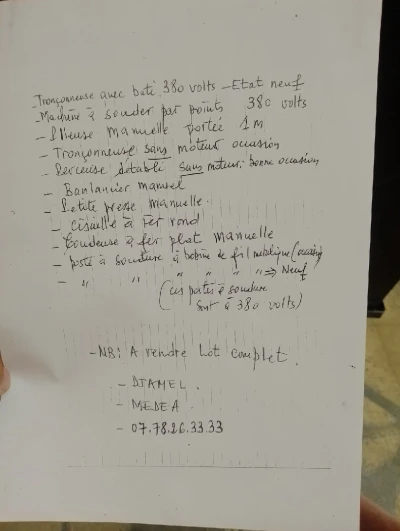 - Tronçonneuse avec bati 380 volts - Etat neuf
- Machine à souder par points 380 volts
- Plieuse manuelle portée 1 m
- Tronçonneuse sans moteur occasion
- Perceuse détabli sans moteur: bonne occasion
- Banlancier manuel
- Petite presse manuelle.
- Cisaille à fer rond
- Coudeuse à fer plat manuelle
- Poste à soudure à bobine de fil métalique (occasion)
- " " " " " " => Neuf
(ces postes à soudure
sont à 380 volts)
- NB: A vendre Lot complet.
- DJAMEL.
- MEDEA.
- 07.78.26.33.33